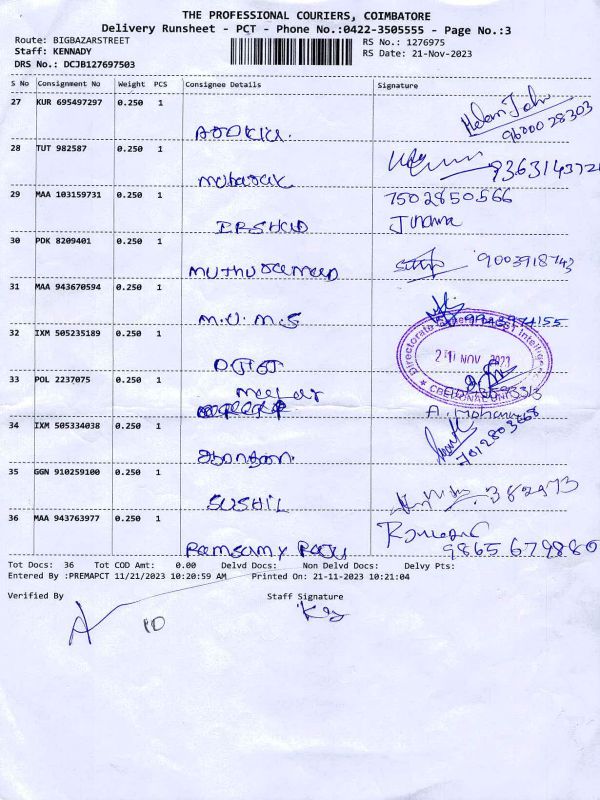 THE PROFESSIONAL COURIERS, COIMBATORE
Delivery Runsheet - PCT - Phone No.:0422-3505555 - Page No.:3
Route: BIGBAZARSTREET
RS No.: 1276975
Staff: KENNADY
RS Date: 21-Nov-2023
DRS No.: DCJB127697503
S No Consignment No Weight PCS Consignee Details Signature
27 KUR 695497297 0.250 1
9600028303
28 TUT 982587 0.250 1
mubarak
29 MAA 103159731 0.250 1
7502850566
ERSHAD
30 PDK 8209401 0.250 1
9003918743
31 MAA 943670594 0.250 1
M.U.M.S
32 IXM 505235189 0.250 1
NOV
33 POL 2237075 0.250 1
34 IXM 505334038 0.250 1
35 GGN 910259100 0.250 1
382973
SUSHIL
36 MAA 943763977 0.250 1
Ramsamy Raju
9865679880
Tot Docs: 36 Tot COD Amt: 0.00 Delvd Docs: Non Delvd Docs: Delvy Pts:
Entered By :PREMAPCT 11/21/2023 10:20:59 AM Printed On: 21-11-2023 10:21:04
Verified By Staff Signature